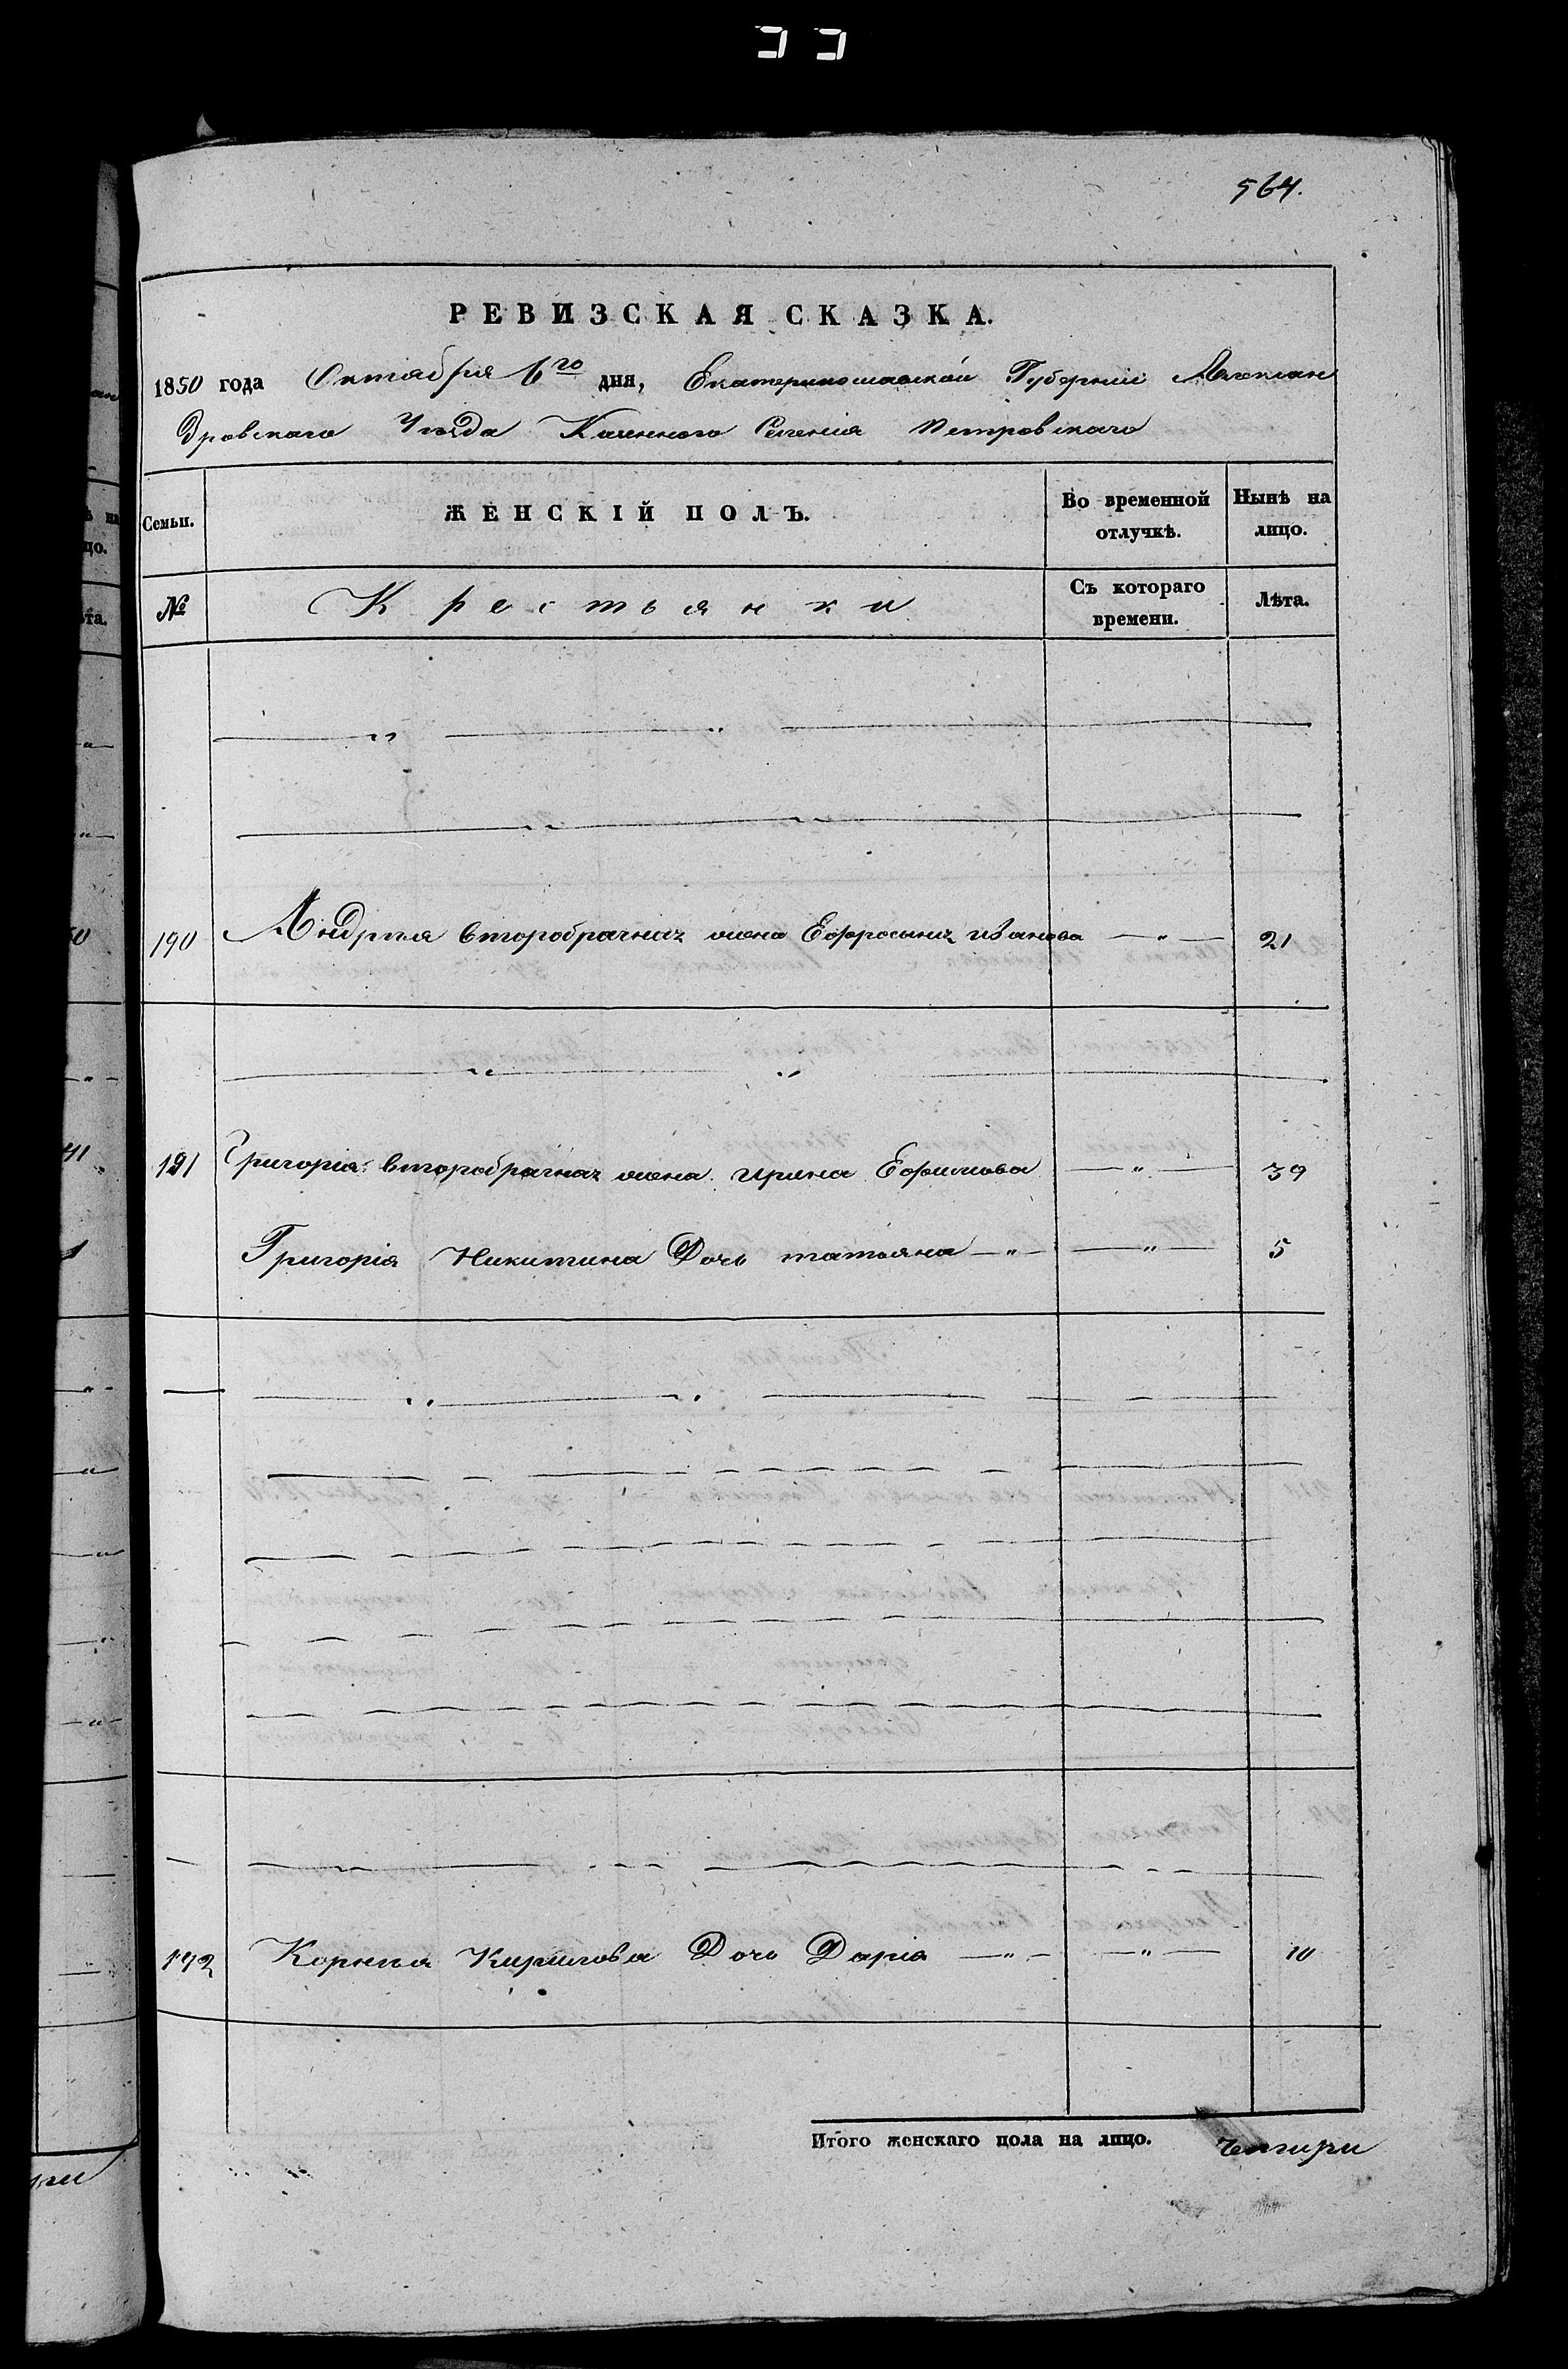 564.
РЕВИЗСКАЯ СКАЗКА.
1850 года Октября 6го дня, Екатеринославской Губерніи Алексан
дровскаго Уѣзда Казенного Селенія Петровскаго
Семьи. ЖЕНСКІЙ ПОЛЪ. Во временной отлучкѣ. Нынѣ на лицо.
№ Крестьянки Съ котораго времени. Лѣта.
190 Андрѣя второбрачная жена Ефросинья иванова — " — 21
191 Григорія второбрачная жена ирина Ефимова — " — 39
Григорія Никитина Дочь татьяна — " — — " — 5
192 Корнѣя Кирилова Дочь Дарія — " — — " — 10
Итого женскаго пола на лицо. четири